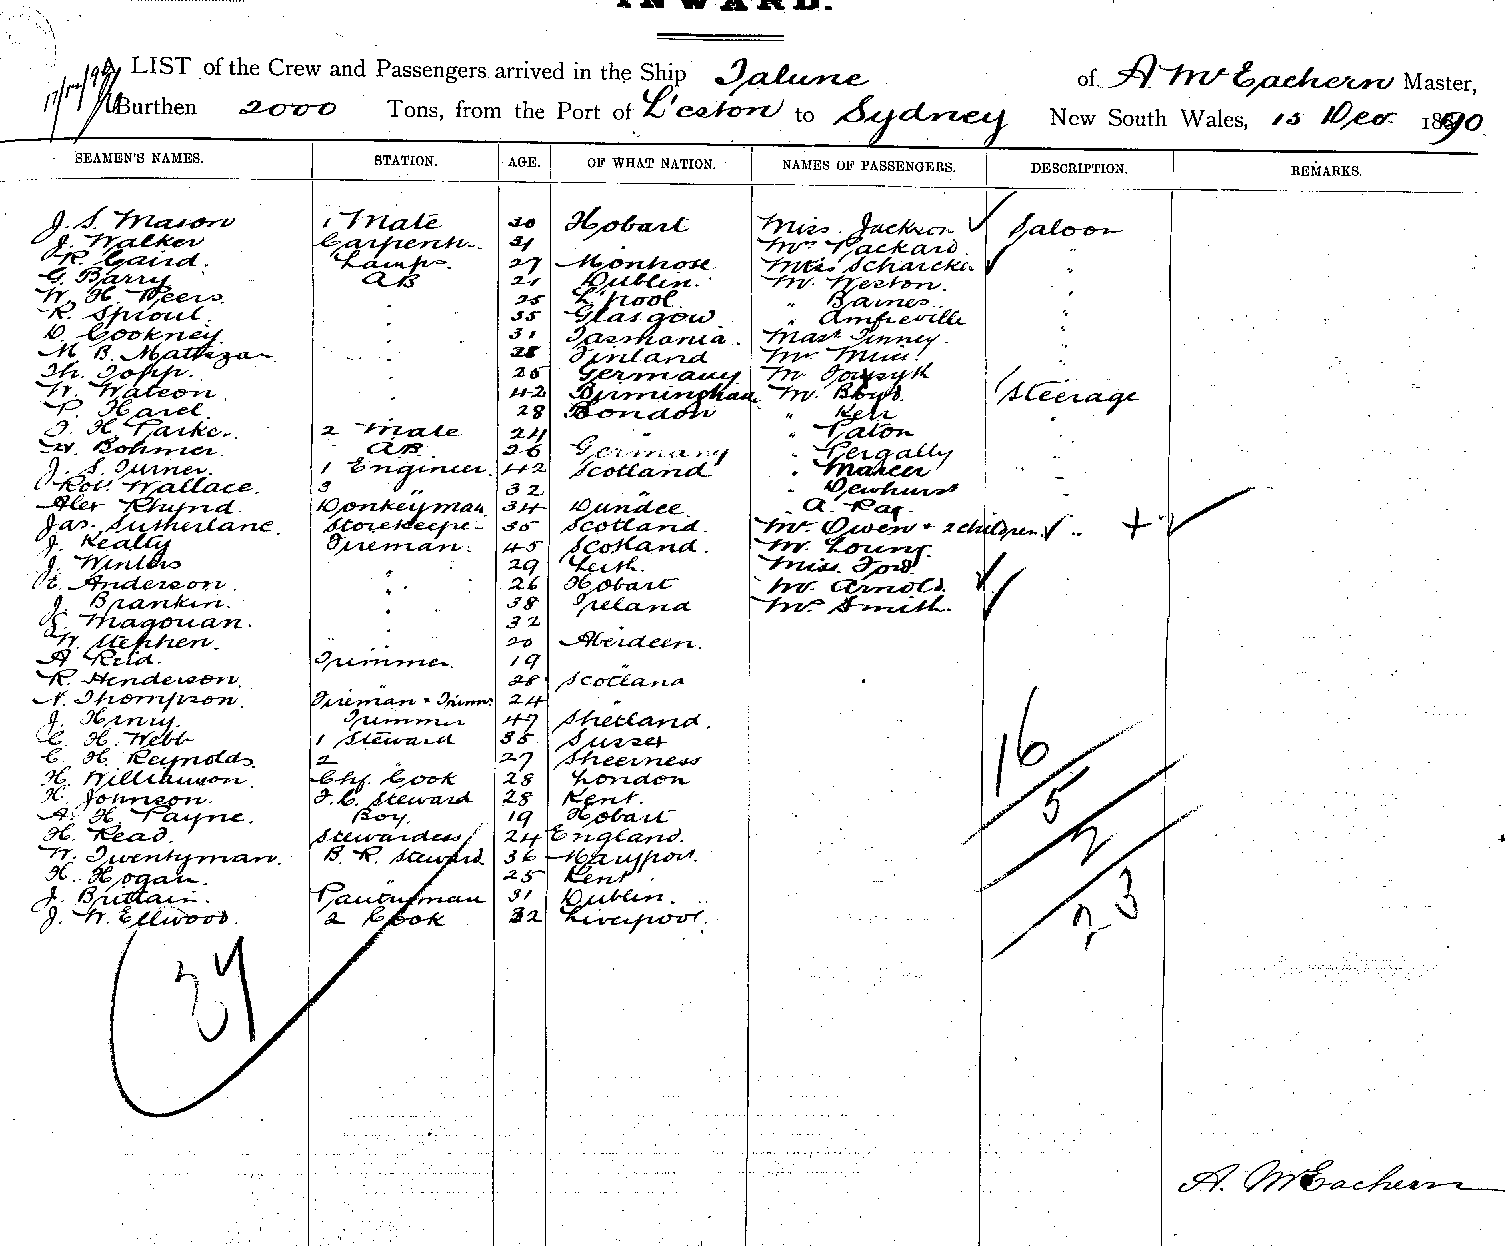 INWARD.
LIST of the Crew and Passengers arrived in the Ship Talune of A McEachern Master,
Burthen 2000 Tons, from the Port of L'eston to Sydney New South Wales, 15 Dec 1890
SEAMEN'S NAMES. STATION. AGE. OF WHAT NATION. NAMES OF PASSENGERS. DESCRIPTION. REMARKS.
J. S. Mason 1 Mate 30 Hobart Miss Jackson Saloon
J. Walker Carpentr. 31 " Mrs Packard "
R. Caird. Lamps. 27 Monrose Miss Scharcke "
G. Barry AB 21 Dublin. Mr Weston. "
W. H. Peers. " 25 L'pool " Barnes "
R. Sproul. " 35 Glasgow " Amfreville "
D. Cookney. " 31 Tasmania. Mast Tinney. "
M. B. " 28 Finland Mr "
Th. Topp. " 25 Germany Mr "
W. Watson " 42 Birmingham Mr Boyd Steerage
P. Harel. " 28 London " Kerr "
T. H Parker. 2 Mate 24 " " Paton "
W. Bohmer. AB. 26 Germany " Pergally "
J. S. Turner. 1 Engineer. 42 Scotland " Mareer "
Robt Wallace. 3 " 32 " " Dewhurst "
Alex Rhynd. Donkeyman 34 Dundee " A. Rae. "
Jas. Sutherland. Storekeeper 35 Scotland. Mr. Owen + 2 children. " +
J. Kealty Fireman. 45 Scotland. Mr. Young. "
J. Winters " 29 Leith. Miss. Ford. "
Anderson. " 26 Hobart Mr Arnold. "
J. Brankin. " 38 Ireland Mrs Smith. "
Magouan. " 32 "
W. Stephen. " 20 Aberdeen.
A Reid. Trimmer. 19 "
R. Henderson. " 28 Scotland
N. Thompson. Fireman + Trimmr 24 "
J. Henry. Trimmer 47 Shetland.
C. H. Webb 1 Steward 35 Sussex
C. H. Reynolds. 2 " 27 Sheerness
H. Williamson. Chf. Cook 28 London
H. Johnson. F. C. Steward 28 Kent.
A. H Payne. Boy. 19 Hobart
H. Read. Stewardess 24 England.
W. Twentyman. B. R. Steward. 36 Maryport.
H. Hogan. 25 Kent
J. Brittain. Pantryman 31 Dublin.
J. W. Ellwood. 2 Cook 32 Liverpool.
16
5
2
23
37
A. McEachern